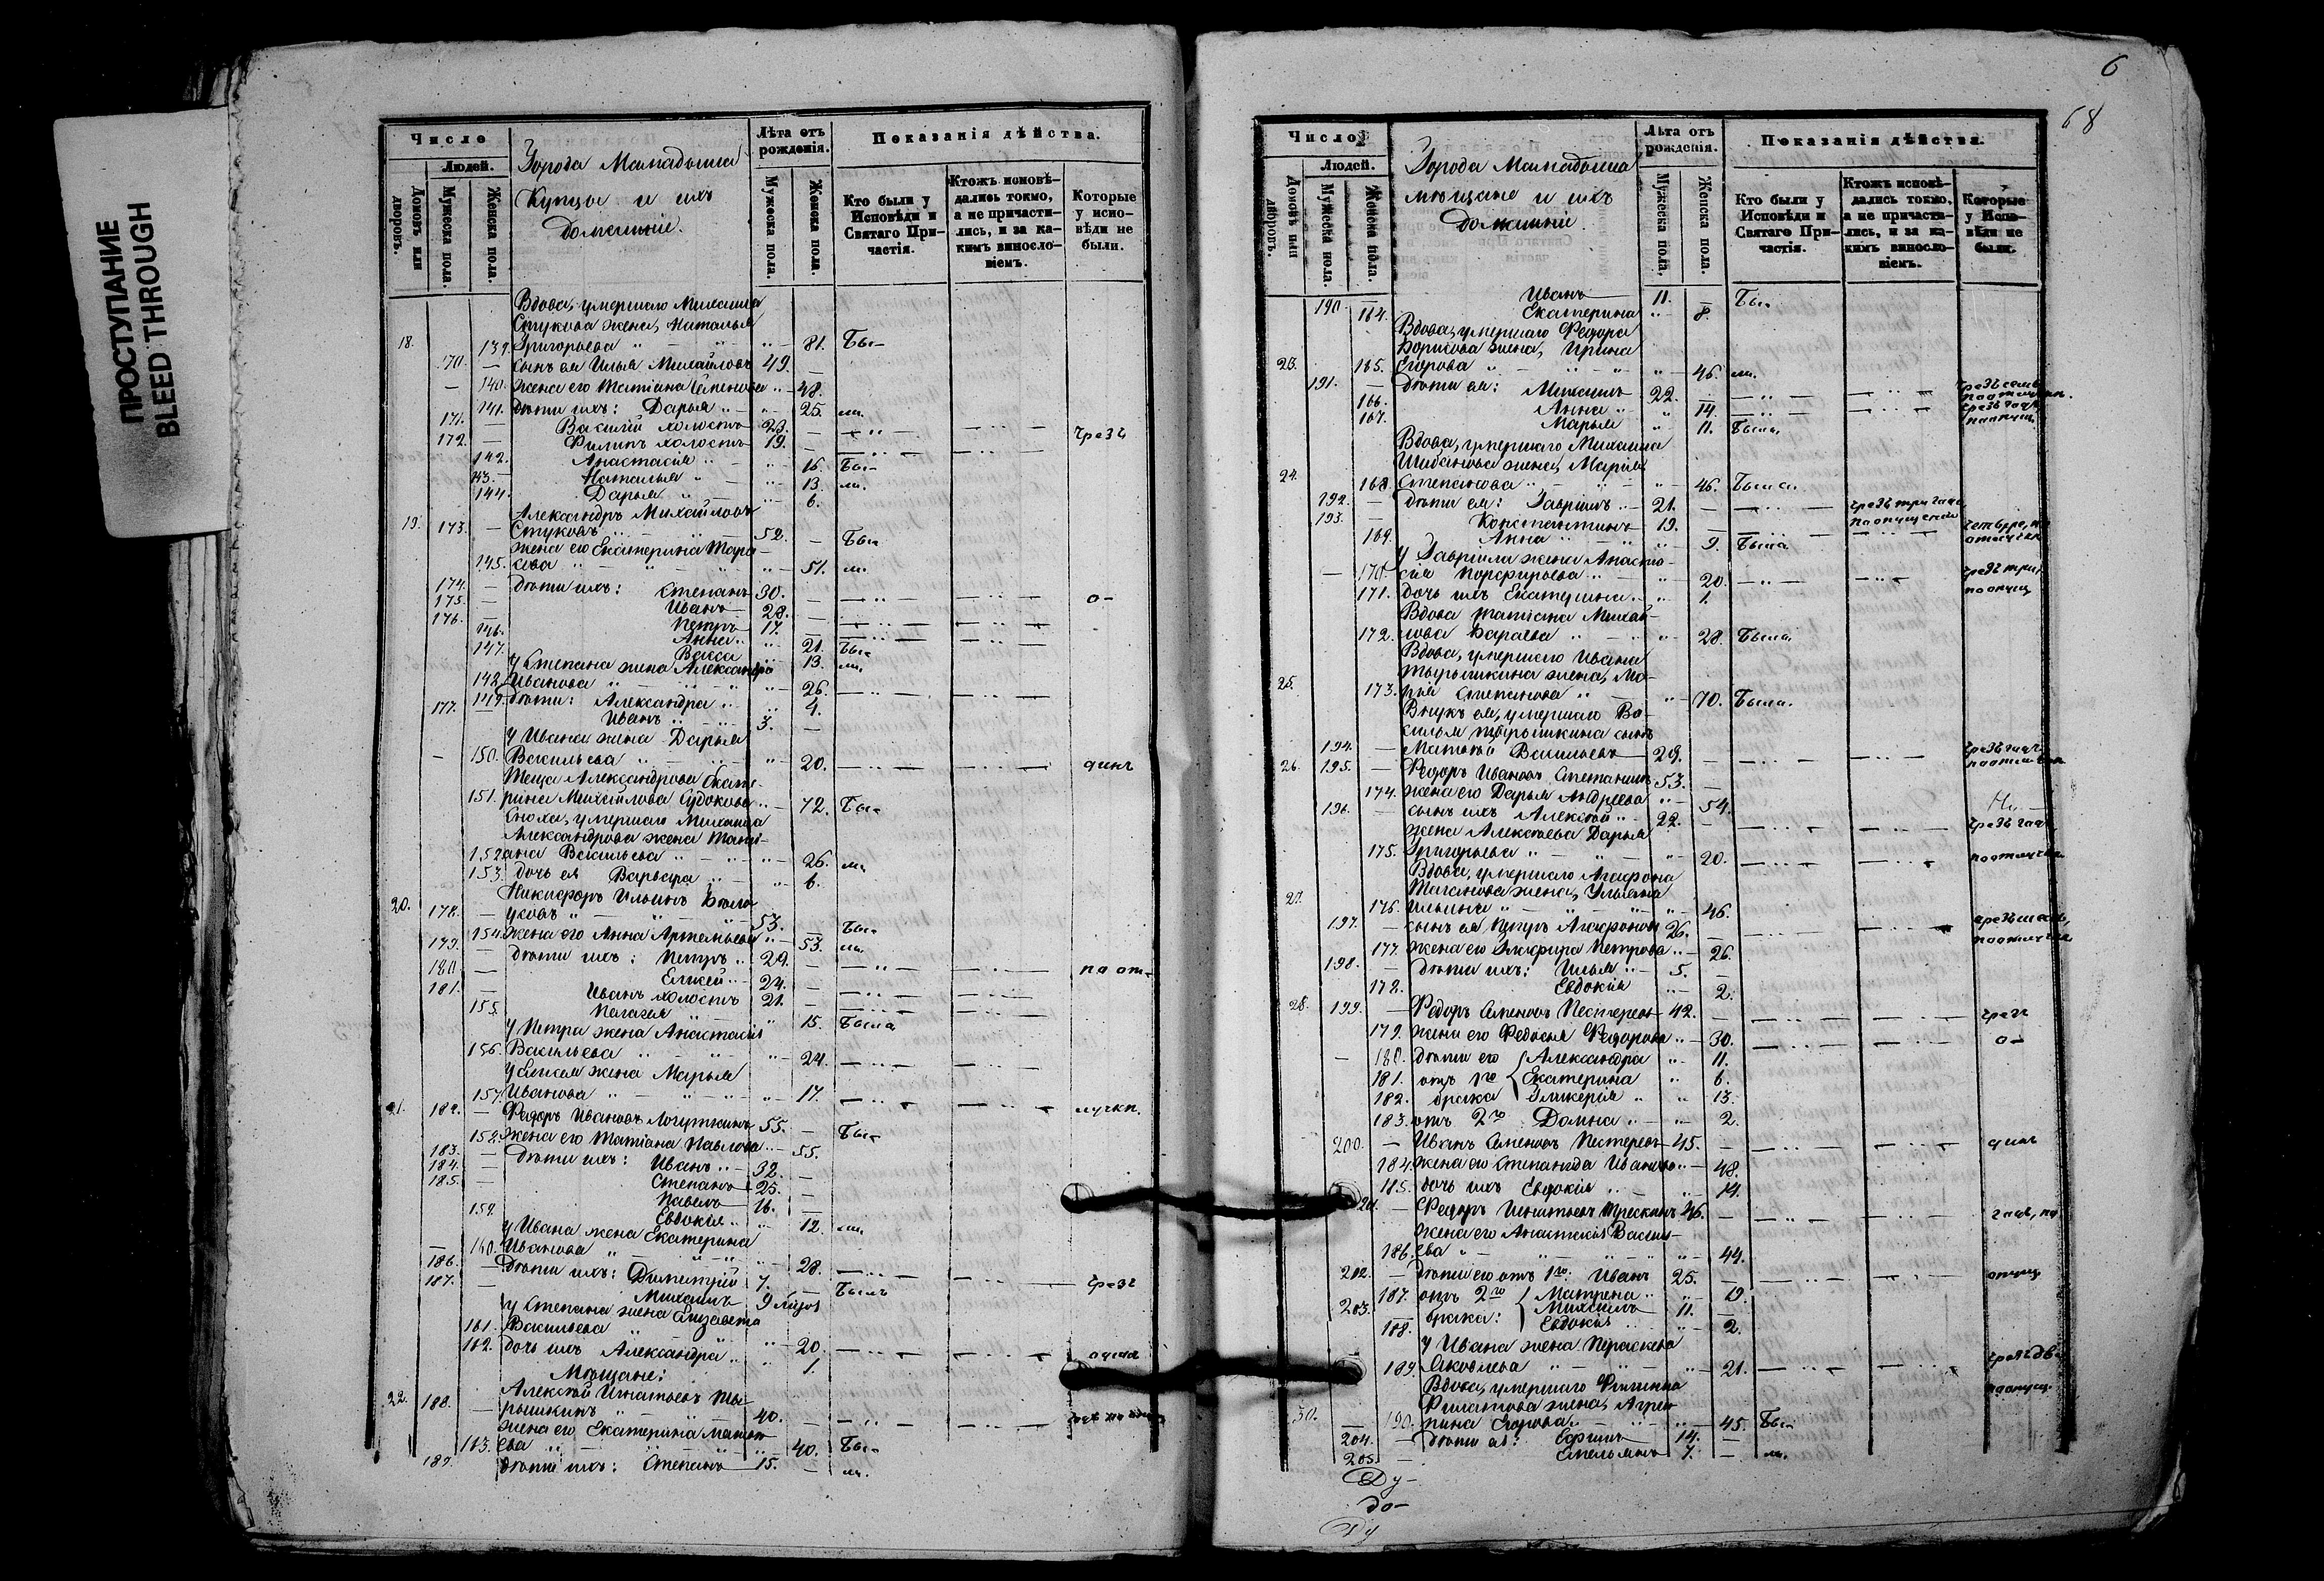 ПРОСТУПАНИЕ
BLEED THROUGH
Число
Людей.
Домовъ или дворовъ.
Мужеска пола.
Женска пола.
Города Мамадыша
Купцы и ихъ
домашніе.
Лѣта отъ рожденія.
Мужеска пола.
Женска пола.
Показанія дѣйства.
Кто были у Исповѣди и Святаго Причастія.
Ктожъ исповѣдались токмо, а не причастились, и за какимъ винословіемъ.
Которые у исповѣди не были.
Вдова, умершаго Михаила
Стукова жена, Наталья
18. 139. Григорьева 81. Бы-
170. сынъ ея Илья Михайловъ 49.
140. жена его Татіана Семенова 48.
141. дѣти ихъ: Дарья 25. ли.
171. Василій холостъ 23.
172. Филипъ холостъ 19. чрезъ
142. Анастасія 16. Бы-
143. Наталья 13. ли.
144. Дарья 6.
Александръ Михайловъ
19. 173. Стуковъ 52. Бы-
жена его Екатерина Тара-
145. сова 51. ли.
174. дѣти ихъ: Степанъ 30.
175. Иванъ 28. о-
176. Петръ 17.
146. Анна 21. Бы-
147. Васса 13. ли.
у Степана жена Александра
148. Иванова 26.
149. дѣти: Александра 4.
177. Иванъ 3.
у Ивана жена Дарья
150. Васильева 20. динъ
Теща Александрова Екате-
151. рина Михайлова Судокова 72. Бы-
Сноха, умершаго Михаила
Александрова жена Тати-
152. ана Васильева 26. ли.
153. дочь ея Варвара 6.
20. Никифоръ Ильинъ
178. 53. Бы-
154. жена его Анна Артемьева 53. ли.
179. дѣти ихъ: Петръ 29.
180. Елисей 24. по от-
181. Иванъ холостъ 21.
155. Пелагея 15. Была
у Петра жена Анастасія
156. Васильева 24.
у Елисея жена Марья
157. Иванова 17. лучкп.
21. 182. Федоръ Ивановъ 55. Бы-
158. жена его Татіана Павлова 55.
183. дѣти ихъ: Иванъ 32.
184. Степанъ 25.
185. Павелъ 16.
159. Евдокія 12. ли.
у Ивана жена Екатерина
160. Иванова 28.
186. дѣти ихъ: Димитрій 7. Былъ чрезъ
187. Михаилъ 9 мѣсяц.
у Степана жена Елизавета
161. Васильева 20.
162. дочь ихъ Александра 1.
Мѣщане:
Алексѣй Игнатьевъ Ты-
22. 188. рышкинъ 40.
жена его Екатерина Матвѣ-
163. ева 40. Бы-
189. дѣти ихъ: Степанъ 15. ли.
6
68
Число
Людей.
Домовъ или дворовъ.
Мужеска пола.
Женска пола.
Города Мамадыша
мѣщане и ихъ
домашніе.
Лѣта отъ рожденія.
Мужеска пола,
Женска пола.
Показанія дѣйства.
Кто были у Исповѣди и Святаго Причастія.
Ктожъ исповѣдались токмо, а не причастились, и за какимъ винословіемъ.
Которые у Исповѣди не были.
190. Иванъ 11. Бы-
164. Екатерина 8.
Вдова, умершаго Федора
Борисова жена, Ирина
23. 165. Егорова 46. ли.
191. дѣти ея: Михаилъ 22.
166. Анна 14.
167. Марья 11. Была.
Вдова, умершаго Михаила
Шибанова жена, Марія
24. 168. Степанова 46. Была.
192. дѣти ея: Гавріилъ 21.
193. Константинъ 19.
169. Анна 9. Была
у Гавріила жена Анаста-
170. сія Порфирьева 20.
171. дочь ихъ Екатерина 1.
Вдова Татіана Михай-
172. лова Бараева 28. Была.
Вдова, умершаго Ивана
Тырышкина жена, Ма-
25. 173. рія Степанова 70. Была.
Внукъ ея, умершаго Ва-
силья Тырышкина сынъ
194. Матвѣй Васильевъ 29.
26. 195. Федоръ Ивановъ 53.
174. жена его Дарья Андреева 54.
196. сынъ ихъ Алексѣй 22.
жена Алексѣева Дарья
175. Григорьева 20.
Вдова, умершаго Агафона
жена, Ульяна
27. 176. Ильина 46.
197. сынъ ея Петръ Агафоновъ 26.
177. жена его Гликерія Петрова 26.
198. дѣти ихъ: Илья 5.
178. Евдокія 2.
28. 199. Федоръ Семеновъ Пестеревъ 42. чрезъ
179. жена его Федосья Федорова 30. о-
180. дѣти его Александра 11.
181. отъ 1го Екатерина 6.
182. брака Гликерія 13.
183. отъ 2го Домна 2.
200. Иванъ Семеновъ Пестеревъ 45. динъ
184. жена его Степанида Иванова 48.
185. дочь ихъ Евдокія 14.
201. Федоръ Игнатьевъ 46.
жена его Анастасія Василь-
186. ева 44.
202. дѣти его отъ 1го: Иванъ 25. опущ.
187. отъ 2го Матрена 19.
203. брака: Михаилъ 11.
188. Евдокія 2.
у Ивана жена Параскева
189. Яковлева 21.
Вдова, умершаго Филиппа
Филатова жена, Агрип-
30. 190. пина Егорова 45. Бы-
204. дѣти ея: Ефимъ 14.
205. Емельянъ 7. ли.
Ду-
до-
Ду